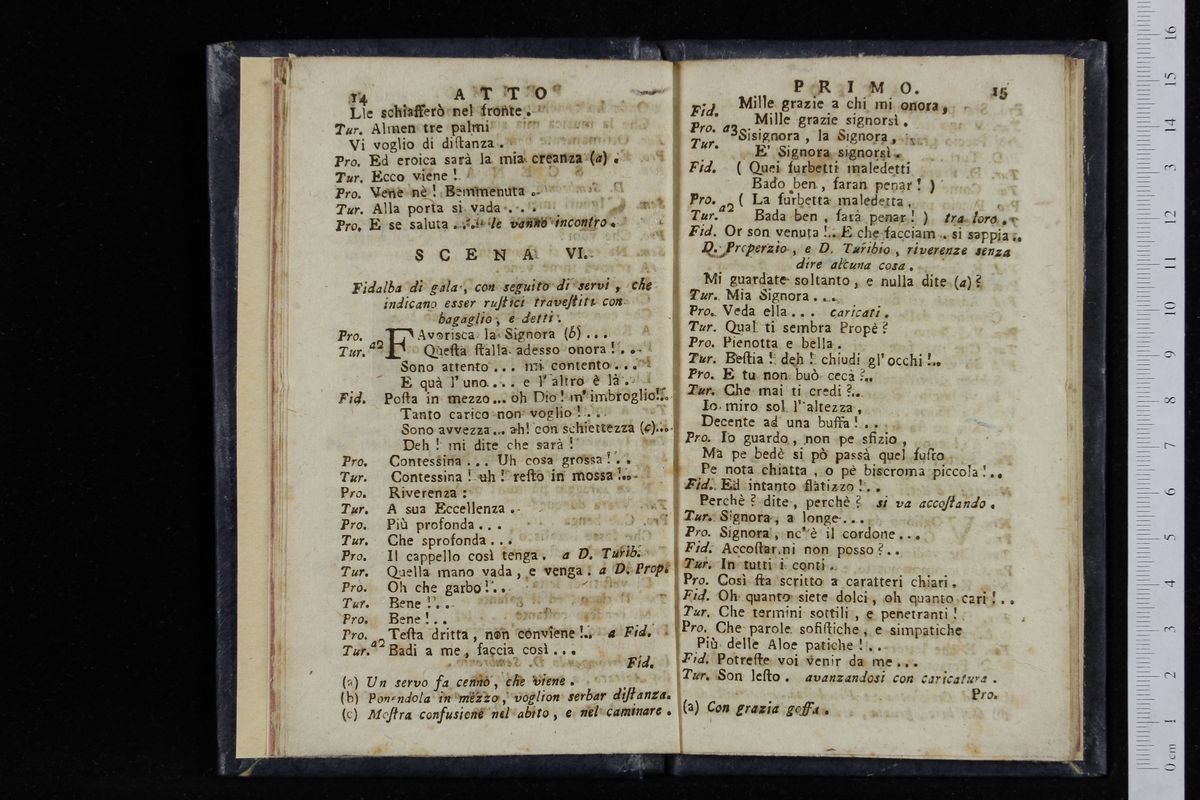 14 ATTO
Lle schiafferò nel fronte.
Tur. Almen tre palmi
Vi voglio di distanza.
Pro. Ed eroica sarà la mia creanza (a).
Tur. Ecco viene!
Pro. Vene nè! Bemmenuta..
Tur. Alla porta si vada...
Pro. E se saluta.... le vanno incontro.
SCENA VI.
Fidalba di gala, con seguito di servi, che
indicano esser rustici travestiti con
bagaglio, e detti.
Pro. FAvorisca la Signora (b)...
Tur. a2 Questa stalla adesso onora!...
Sono attento... mi contento...
E quà l'uno... e l'altro è là.
Fid. Posta in mezzo... oh Dio! m'imbroglio!..
Tanto carico non voglio!...
Sono avvezza... ah! con schiettezza (c)...
Deh! mi dite che sarà!
Pro. Contessina... Uh cosa grossa!...
Tur. Contessina! uh! resto in mossa!...
Pro. Riverenza:
Tur. A sua Eccellenza..
Pro. Più profonda...
Tur. Che sprofonda...
Pro. Il cappello così tenga. a D. Turib.
Tur. Quella mano vada, e venga. a D. Prop.
Pro. Oh che garbo!...
Tur. Bene!...
Pro. Bene!..
Pro. Testa dritta, non conviene!.. a Fid.
Tur. a2 Badi a me, faccia così...
Fid.
(a) Un servo fa cenno, che viene.
(b) Ponendola in mezzo, voglion serbar distanza.
(c) Mostra confusione nel abito, e nel caminare.
PRIMO. 15
Fid. Mille grazie a chi mi onora,
Mille grazie signorsì.
Pro. a3 Sisignora, la Signora,
Tur. E' Signora signorsì.
Fid. ( Quei furbetti maledetti
Bado ben, faran penar! )
Pro. a2 ( La furbetta maledetta,
Tur. Bada ben, farà penar! ) tra loro.
Fid. Or son venuta!.. E che facciam. si sappia..
D. Properzio, e D. Turibio, riverenze senza
dire alcuna cosa.
Mi guardate soltanto, e nulla dite (a)?
Tur. Mia Signora...
Pro. Veda ella... caricati.
Tur. Qual ti sembra Propè?
Pro. Pienotta e bella.
Tur. Bestia! deh! chiudi gl'occhi!..
Pro. E tu non buò cecà?..
Tur. Che mai ti credi?..
Io miro sol l'altezza,
Decente ad una buffa!...
Pro. Io guardo, non pe sfizio,
Ma pe bedè si pò passà quel fusto
Pe nota chiatta, o pe biscroma piccola!..
Fid. Ed intanto flatizzo!..
Perchè? dite, perchè? si va accostando.
Tur. Signora, a longe...
Pro. Signora, nc'è il cordone...
Fid. Accostarmi non posso?..
Tur. In tutti i conti.
Pro. Così sta scritto a caratteri chiari.
Fid. Oh quanto siete dolci, oh quanto cari!..
Tur. Che termini sottili, e penetranti!
Pro. Che parole sofistiche, e simpatiche
Più delle Aloe patiche!..
Fid. Potreste voi venir da me...
Tur. Son lesto. avanzandosi con caricatura.
Pro.
(a) Con grazia goffa.
0 cm 1 2 3 4 5 6 7 8 9 10 11 12 13 14 15 16